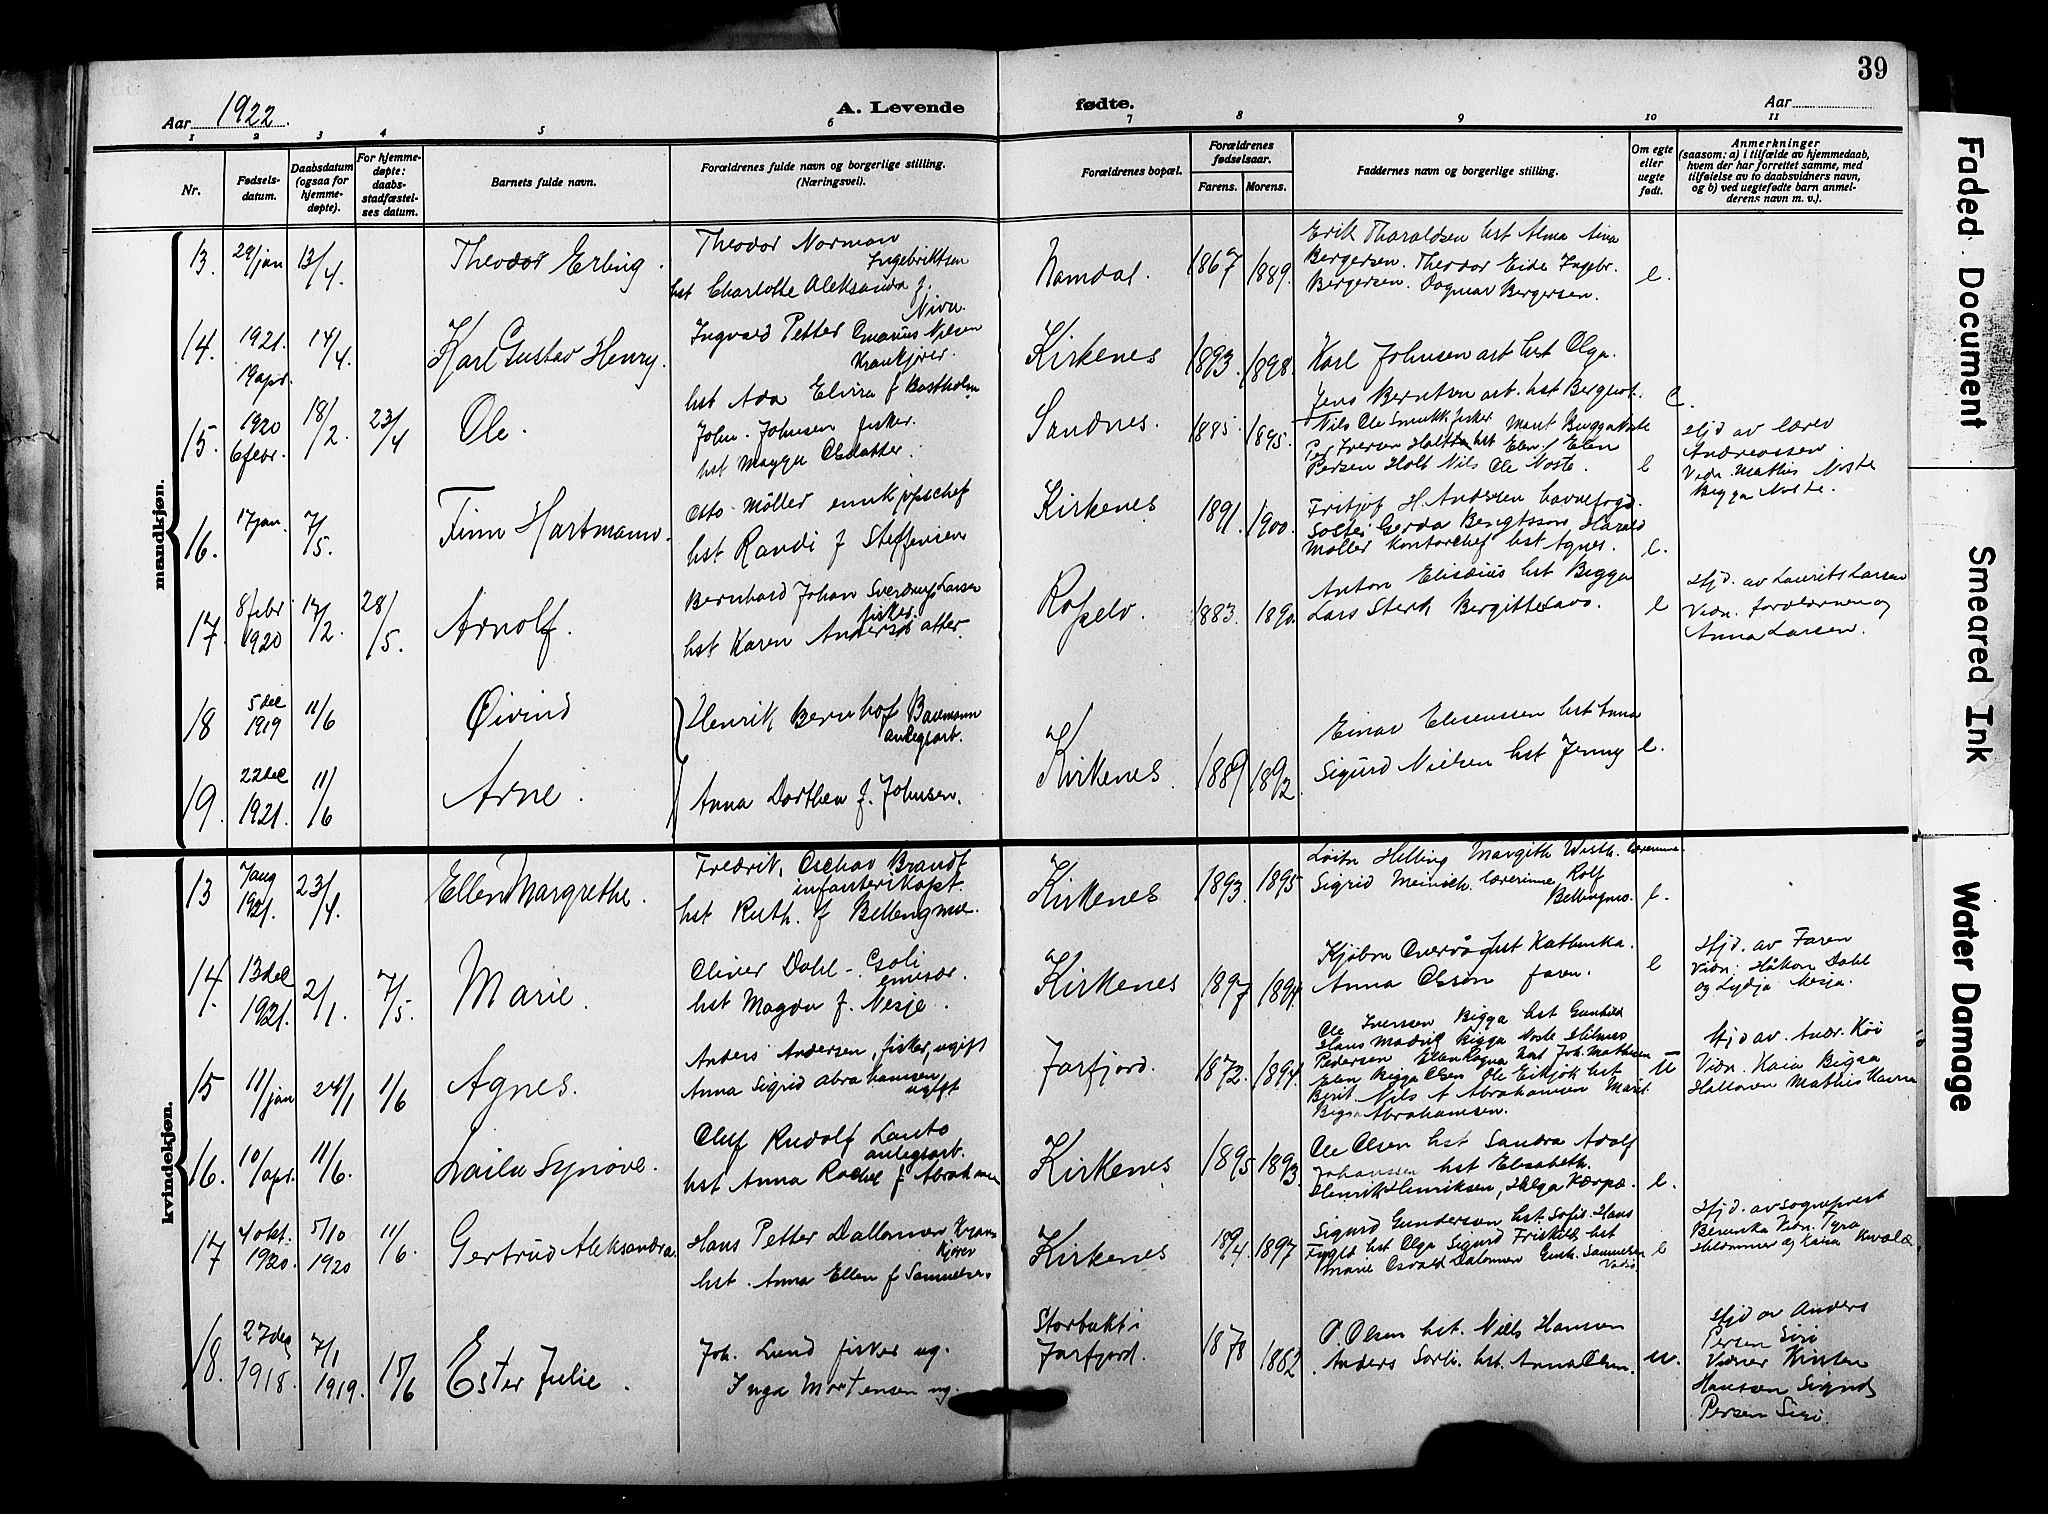 39
Aar 1922.
A. Levende fødte.
Aar
1 2 3 4 5 6 7 8 9 10 11
Nr.
Fødsels-
datum.
Daabsdatum
(ogsaa for
hjemme-
døpte).
For hjemme-
døpte:
daabs-
stadfæstel-
ses datum.
Barnets fulde navn.
Forældrenes fulde navn og borgerlige stilling.
(Næringsvei).
Forældrenes bopæl.
Forældrenes
fødselsaar.
Farens. Morens.
Faddernes navn og borgerlige stilling.
Om egte
eller
uegte
født.
Anmerkninger
(saasom: a) i tilfælde av hjemmedaab,
hvem der har forrettet samme, med
tilføielse av to daabsvidners navn,
og b) ved uegtefødte barn anmel-
derens navn m. v.).
mandkjøn.
13. 29/jan 13/4 Theodor Erling.
Theodor Norman
Ingebriktsen
hst Charlotte Aleksanda f.
Namdal. 1867 1889.
Erik Tharaldsen hst Alma Aina
Bergersen. Theodor Eide Ingebr.
Bergersen. Dagmar Bergersen. e.
14. 1921. 19 apr. 17/4 Karl Gustav Henry.
Ingvald Petter Omarius Nilsen
Krankjører.
hst Ada Elvira f Bostholm
Kirkenes 1893. 1898.
Karl Johnsen arb hst Olga.
Jens Berntsen arb. hst Bergljot. e.
15. 1920 6 febr. 18/2. 23/4 Ole.
John. Johnsen fisker.
hst Magga Olsdatter.
Sandnes. 1885. 1895.
Nils Ole Smukk fisker Marit Bigga Noste
Per Iversen hst Elen f Elen
Persen Holt Nils Ole Noste. e
Hjd av lærer
Andreassen
Vidn. Mathis Noste
Bigga Noste.
16. 17 jan. 7/5. Finn Hartmann.
Otto Møller
hst Randi f Steffensen
Kirkenes 1891. 1900.
Fritjof H. Andersen havnefogd
Gerda Bengtsson, Harald
Møller kontorchef hst Agnes. e.
17. 8 febr 1920 17/2. 28/5. Arnolf.
Bernhard Johan Sverdrup Larsen
fisker.
hst Karen Andersdatter.
1883. 1890.
Anton Elisæus hst Bigga
Lars Sterk Bergitte Savo. e
Hjd. av Laurits Larsen
Vidn. forældrene og
Anna Larsen.
18 5 dec 1919 11/6 Øivind
Henrik Bernhof
anlegsarb.
19. 22 dec 1921. 11/6 Arne.
Anna Dorthea f. Johnsen.
Kirkenes. 1889 1892.
Einar Elisenssen hst Anna
Sigurd Nielsen hst Jenny e.
kvindekjøn.
13 7 aug 1921. 23/4. Ellen Margrethe.
Fredrik Oschav Brandt
infanterikapt.
hst Ruth. f Bellengmoe.
Kirkenes 1893. 1895
Løitn Helling Margith With. lærerinne
Sigrid Meinich. lærerinne Rolf
Bellingmo. e.
14. 13 dec 1921. 2/1. 7/5. Marie.
Oliver Dahl - Osoli
emissær.
hst Magda f. Nesje.
Kirkenes 1897 1894
hst Kathinka.
Anna Olsen faren. e
Hjd. av Faren
Vidn. Håkon Dahl
og Lydia Nesje.
15 11/jan 24/1 11/6 Agnes.
Anders Andersen, fisker, ugift
Anna Sigrid Abrahamsen
ugift
Jarfjord. 1872. 1894.
Ole Iverssen Bigga hst Gunhild
Hans Madvig Bigga Noste Hilmes
Pedersen Elen Ragna hst Joh. Mathisen
Elen Bigga Olsen Ole Eikjok hst
Berit. Nils A Abrahamsen Marit
Bigga Abrahamsen. u
Hjd av Andr. Koi
Vidn. Kaia Bigga
Halloren Mathis Kavna
16. 10/apr. 11/6. Laila Synøve.
Oluf Rudolf Lauto
anlegsarb.
hst Anna Rachel f Abrahamsen
Kirkenes 1895 1893.
Ole Olsen hst Sandra Adolf
Johanssen hst Elisabeth.
Henrik Henriksen, Helga Kærpæ. e.
17 4 okt. 1920. 5/10 1920 11/6. Gertrud Aleksandra.
Hans Petter Dallemon Kran
kjører
hst. Anna Ellen f Samuelsen
Kirkenes 1894 1897
Sigurd Gundersen hst. Sofie Hans
hst Olga Sigurd Friskilt hst
Marie Osvald Dalomon Gust. Samuelsen
Vadsø e
Hjd. av sogneprest
Beronka Vidn. Tyra
Heldmmer og Kaisa Kvalæ
18. 27 des 1918. 7/1 1919. 17/6 Ester Julie.
Joh. Lund fisker ug.
Inga Mortensen ug.
Storbukt i
Jarfjord. 1878 1882
O. Olsen hst. Niels Hansen
Anders Sorli. hst. Anna Olsen. u.
Hjd av Anders
Persen Siri
Vidner Kirsten
Hansen Signe
Persen Siri.
Faded Document
Smeared Ink
Water Damage